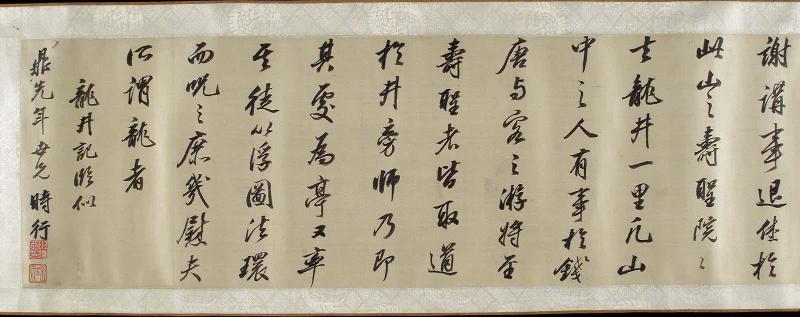 謝講事退休於
此山之壽聖院〻
去龍井一里凡山
中之人有事於錢
唐與客之游將至
壽聖者皆取道
於井旁師乃即
其處為亭又率
其徒以浮圖法環
而呪之庶幾慰夫
所謂龍者
龍井記 似
鼎先年世兄 時行